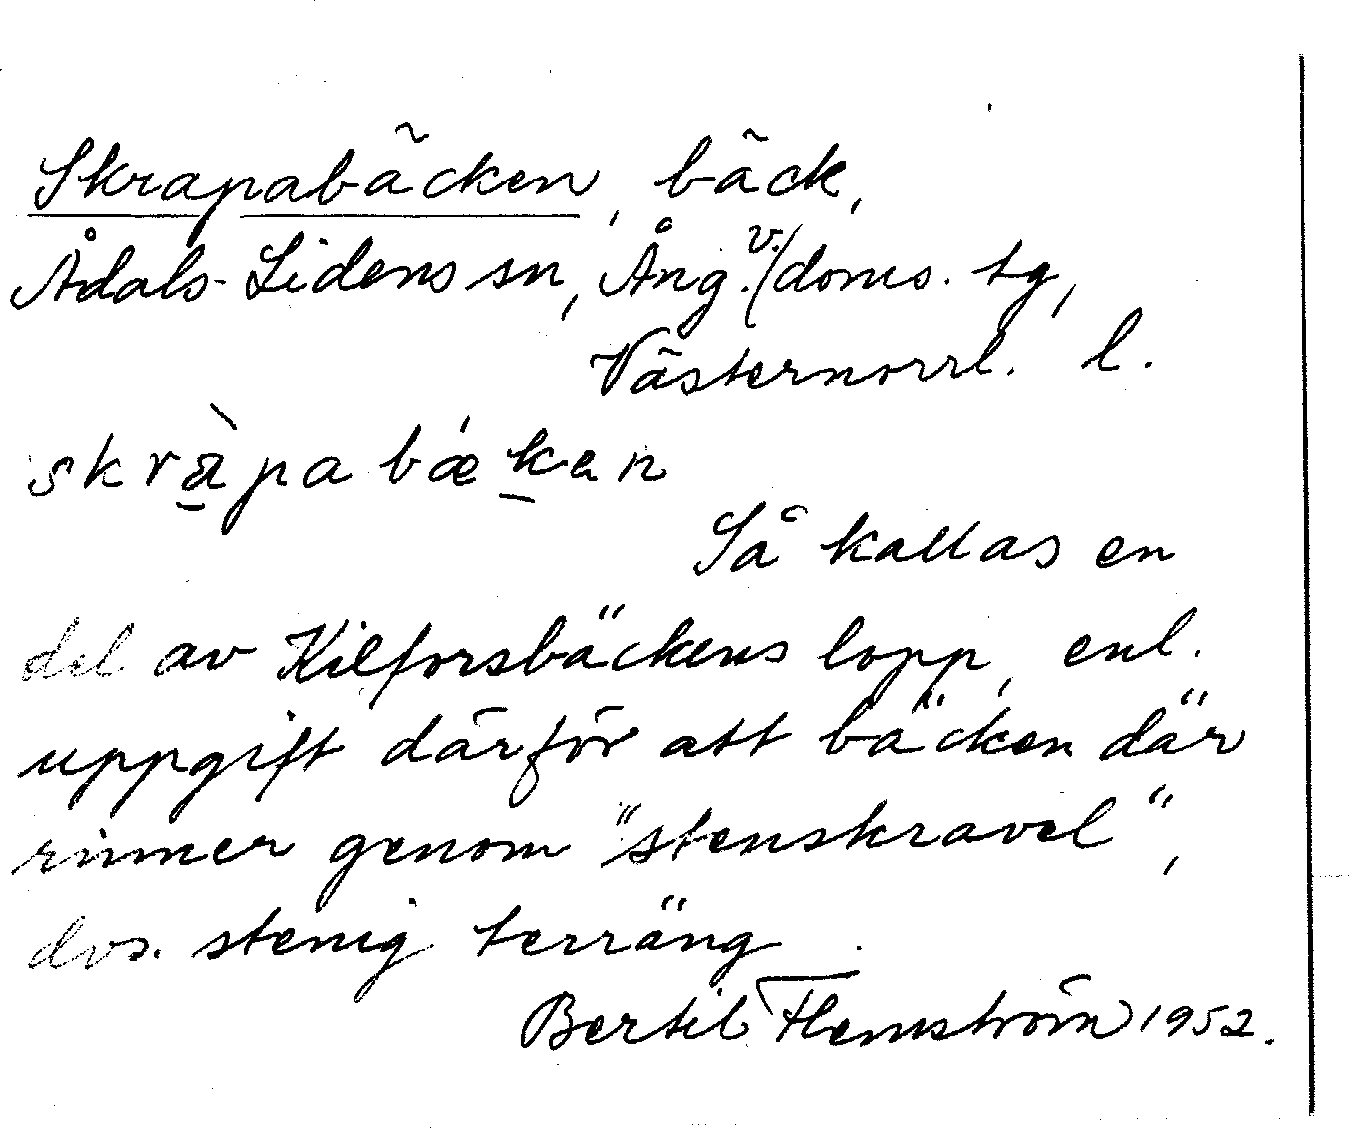 Skrapabäcken, bäck,
Ådals-Lidens sn, Ång. v./doms. tg,
Västernorrl. l.
skràpabǽkan
Så kallas en
del av Kilforsbäckens lopp, enl.
uppgift därför att bäcken där
rinner genom "stenskravel",
dvs. stenig terräng.
Bertil Flemström 1952.